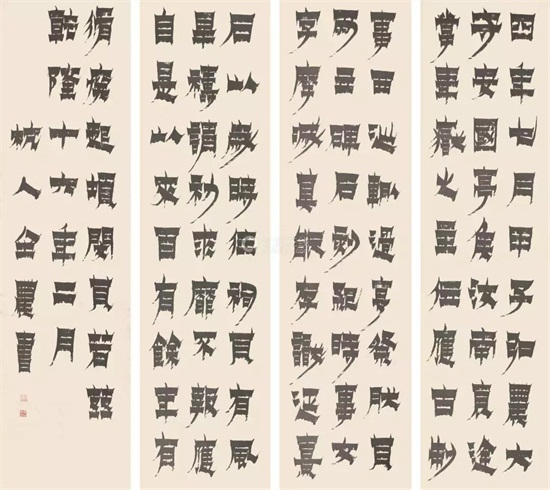 四年七月甲子弘農大
守安國亭侯汝南袁逢
掌華嶽之主位應古制
事西巡輒過享祭然其
所立碑石刻紀時事文
字摩滅莫能存識延熹
石以歲時往祠其有風
旱禱請祈求靡不報應
自是以來百有餘年有
脩廢起頓閔其若茲
乾隆十六年二月
杭人金農書